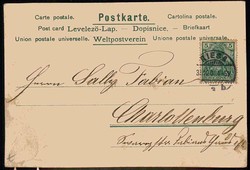 Carte postale. Postkarte. Cartolina postale.
Post card — Levelező-Lap. — Dopisnice. — Briefkaart
Union postale universelle. Weltpostverein Unione postale universale.
Herrn Sally Fabian
Charlottenburg